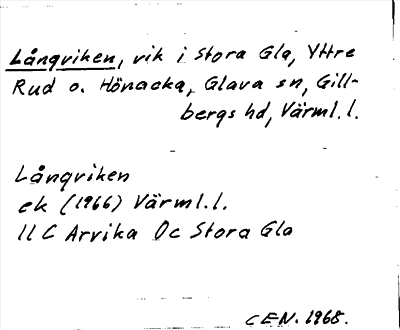 Långviken, vik i Stora Gla, Yttre
Rud o. Hönacka, Glava sn, Gill-
bergs hd, Värml. l.
Långviken
ek (1966) Värml. l.
11 C Arvika 0c Stora Gla
CEN. 1968.